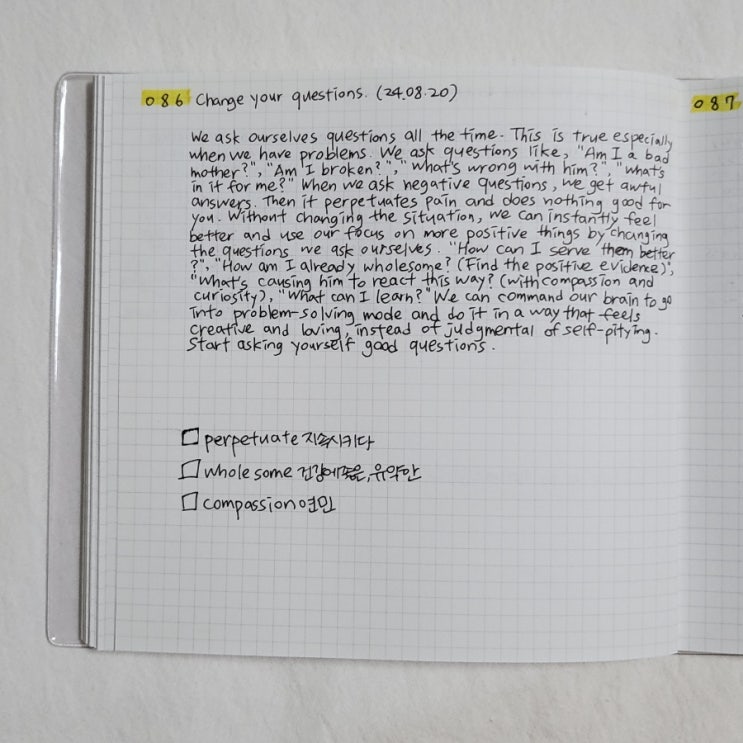 086 Change your questions. (24.08.20)
087
We ask ourselves questions all the time. This is true especially
when we have problems. We ask questions like, "Am I a bad
mother?", "Am I broken?", "What's wrong with him?", "What's
in it for me?" When we ask negative questions, we get awful
answers. Then it perpetuates pain and does nothing good for
you. Without changing the situation, we can instantly feel
better and use our focus on more positive things by changing
the questions we ask ourselves. "How can I serve them better
?", "How am I already wholesome? (Find the positive evidence)",
"What's causing him to react this way? (with compassion and
curiosity), "What can I learn?" We can command our brain to go
into problem-solving mode and do it in a way that feels
creative and loving, instead of judgmental of self-pitying.
Start asking yourself good questions.
perpetuate 지속시키다
wholesome 건강에좋은, 유익한
compassion 연민